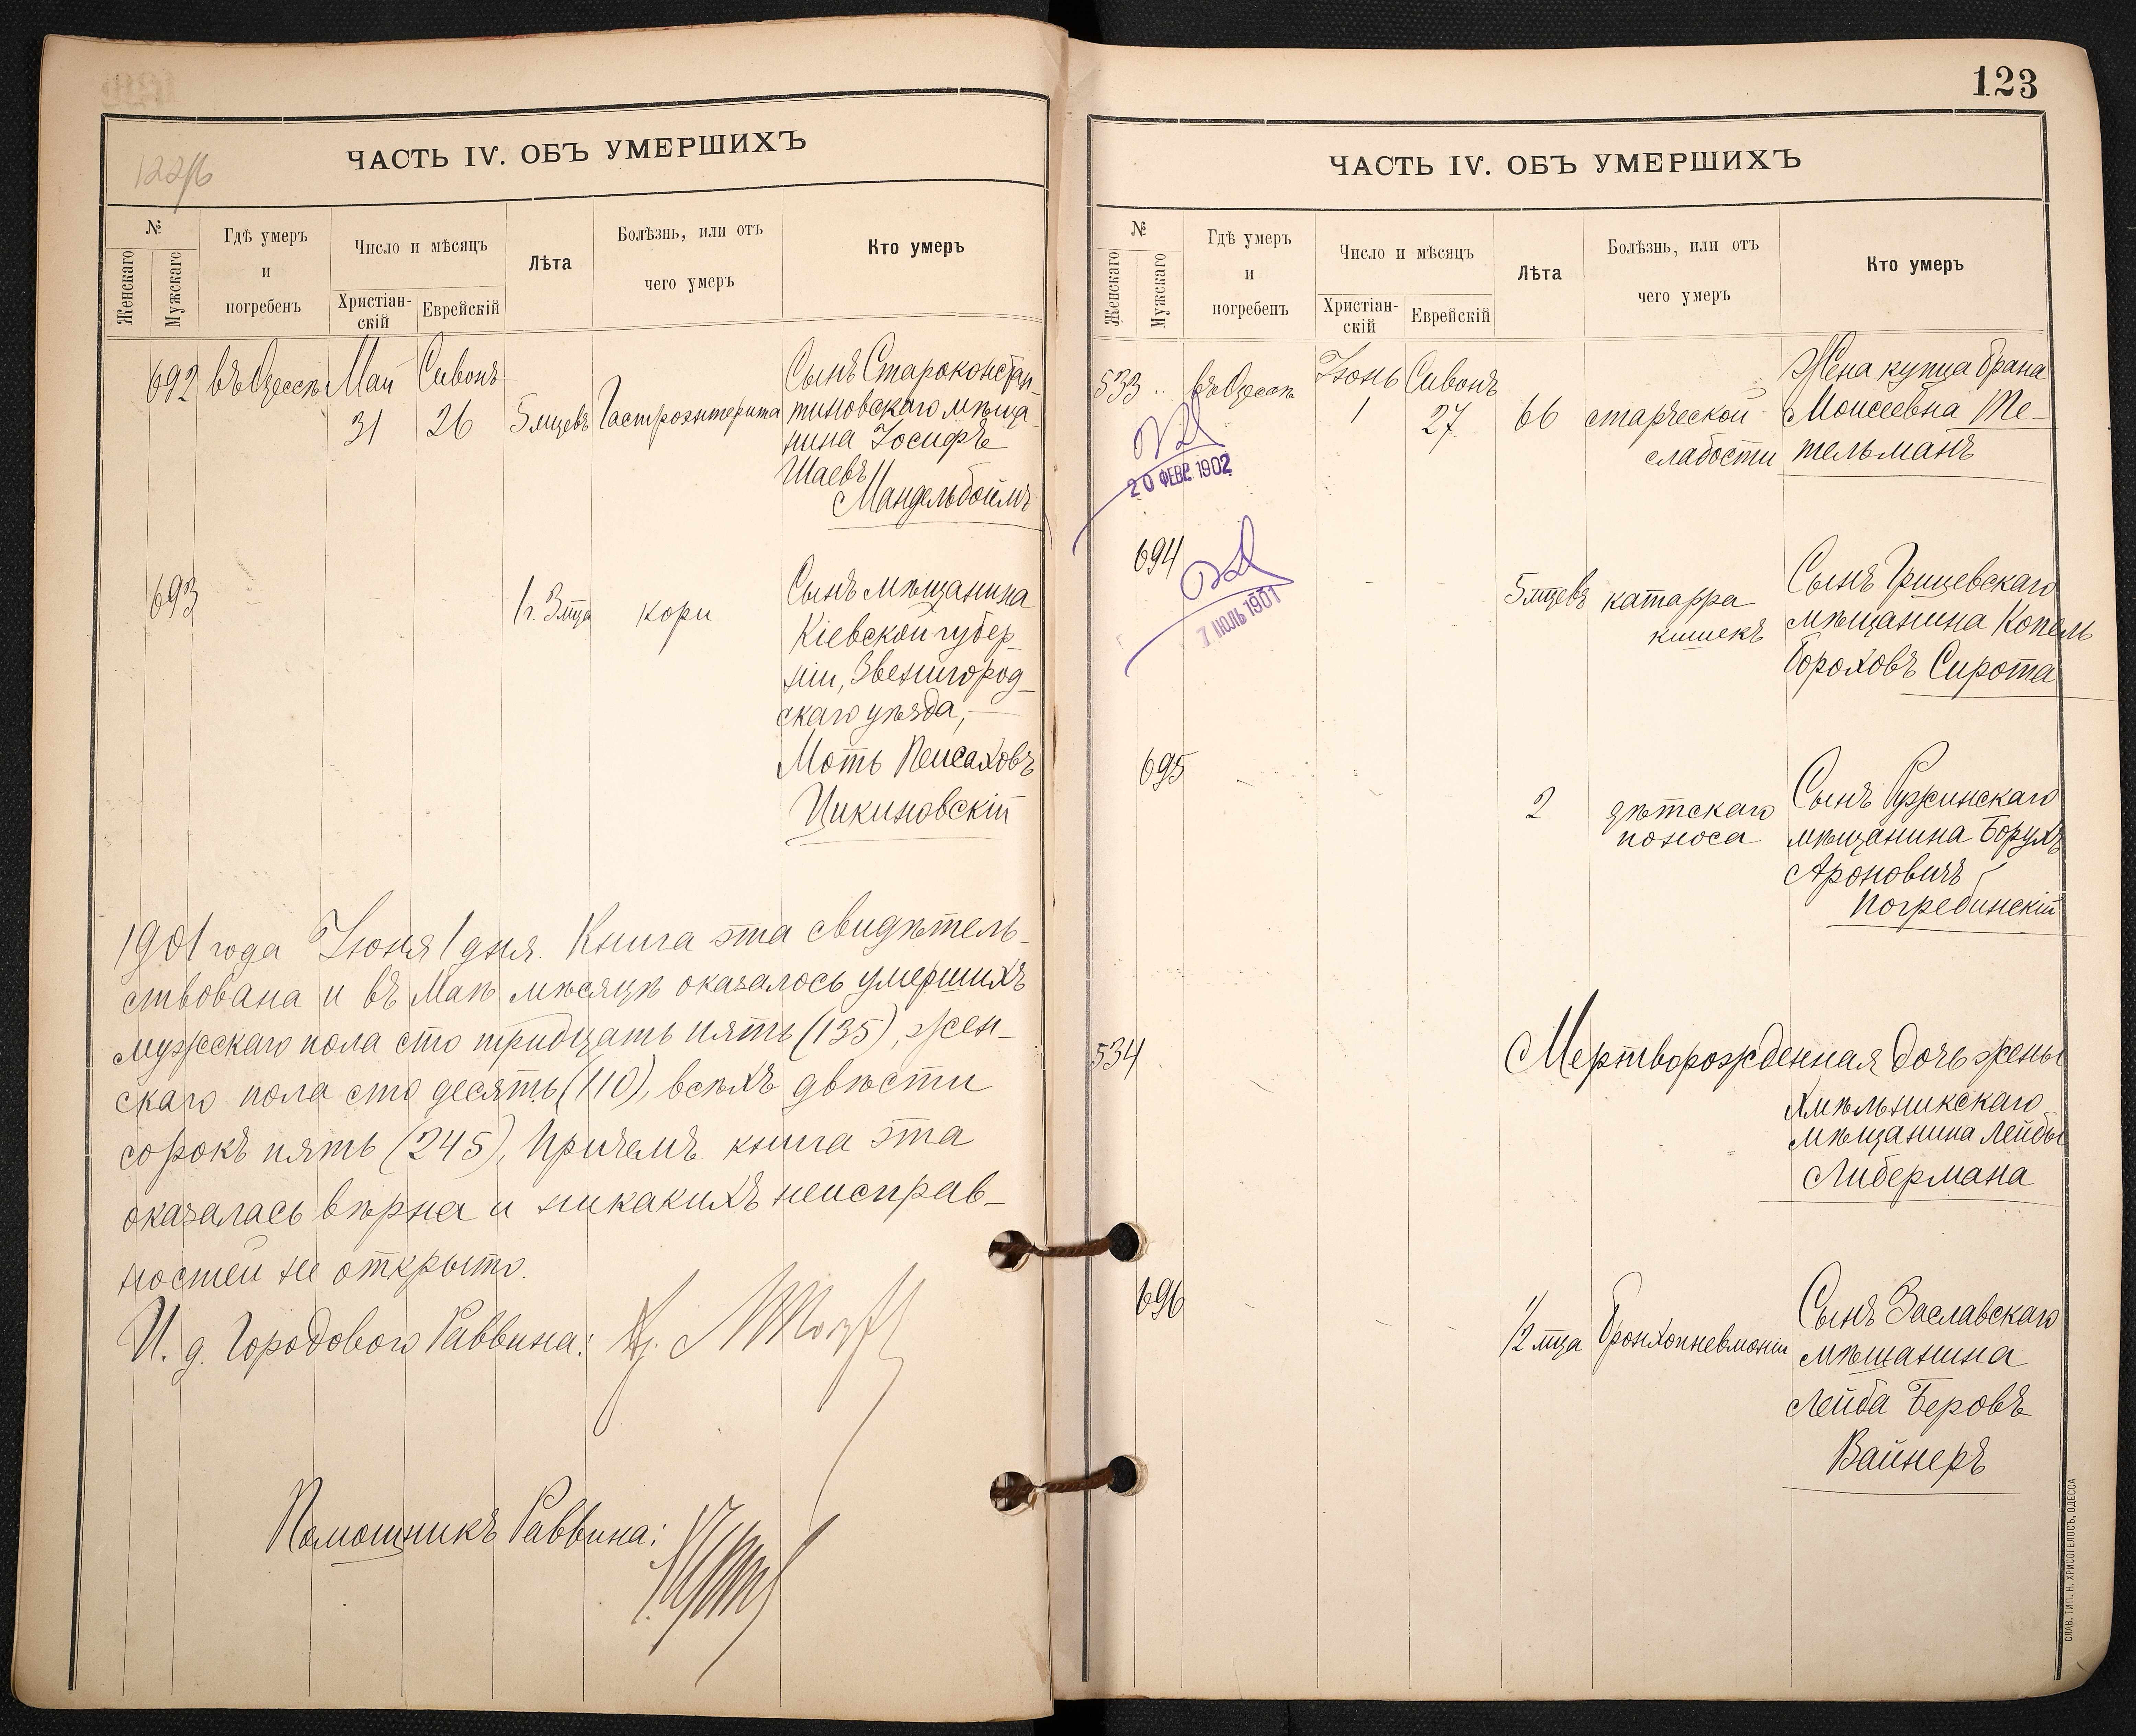 122/б
ЧАСТЬ IV. ОБЪ УМЕРШИХЪ
№
Женскаго
Мужскаго
Гдѣ умеръ
и
погребенъ
Число и мѣсяцъ
Христіан-
скій
Еврейскій
Лѣта
Болѣзнь, или отъ
чего умеръ
Кто умеръ
692 въ Одессѣ Май Сивонъ
31 26 5 мцевъ Гастроэнтерита
Сынъ Староконстан-
тиновскаго мѣща-
нина Іосифъ
Шаевъ
Мандельбоймъ
693
1 г. 3 мца кори
Сынъ мѣщанина
Кіевской губер-
ніи, Звенигород-
скаго уѣзда,
Моть Пейсаховъ
Цикиновскій
1901 года Іюня 1 дня. Книга эта свидѣтель-
ствована и въ Маѣ мѣсяцѣ оказалось умершихъ
мужескаго пола сто тридцать пять (135), жен-
скаго пола сто десять (110), всѣхъ двѣсти
сорокъ пять (245), причемъ книга эта
оказалась вѣрна и никакихъ неисправ-
ностей не открыто.
И. д. Городового Раввина:
Помошникъ Раввина:
123
ЧАСТЬ IV. ОБЪ УМЕРШИХЪ
№
Женскаго
Мужскаго
Гдѣ умеръ
и
погребенъ
Число и мѣсяцъ
Христіан-
скій
Еврейскій
Лѣта
Болѣзнь, или отъ
чего умеръ
Кто умеръ
533 въ Одессѣ Іюнь Сивонъ
1 27 66 старческой
слабости
Жена купца Брана
Моисеевна Те-
тельманъ
20 ФЕВР. 1902
694
7 ІЮЛЬ 1901
5 мцевъ катарра
кишекъ
Сынъ Грицевскаго
мѣщанина Копель
Бороховъ Сирота
695
2 дѣтскаго
поноса
Сынъ Ружинскаго
мѣщанина Борухъ
Ароновичъ
Погребинскій
534
Мертворожденная дочь жены
Хмѣльникскаго
мѣщанина Лейбы
Либермана
696
1/2 мца Бронхопневмоніи
Сынъ Заславскаго
мѣщанина
Лейба Беровъ
Вайнеръ
СЛАВ. ТИП. Н. ХРИСОГЕЛОСЪ, ОДЕССА